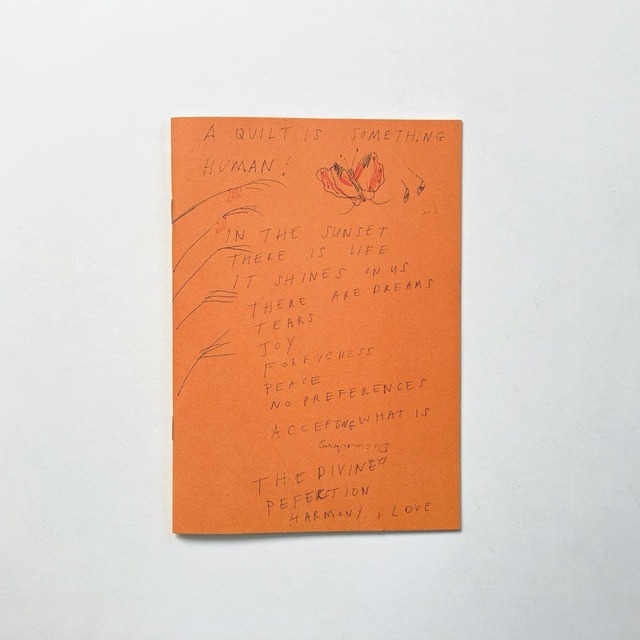 A QUILT IS SOMETHING
HUMAN!
IN THE SUNSET
THERE IS LIFE
IT SHINES ON US
THERE ARE DREAMS
TEARS
JOY
FOREVENESS
PEACE
NO PREFERENCES
ACCEPTING WHAT IS
THE DIVINE
PEFERCTION
HARMONY, LOVE